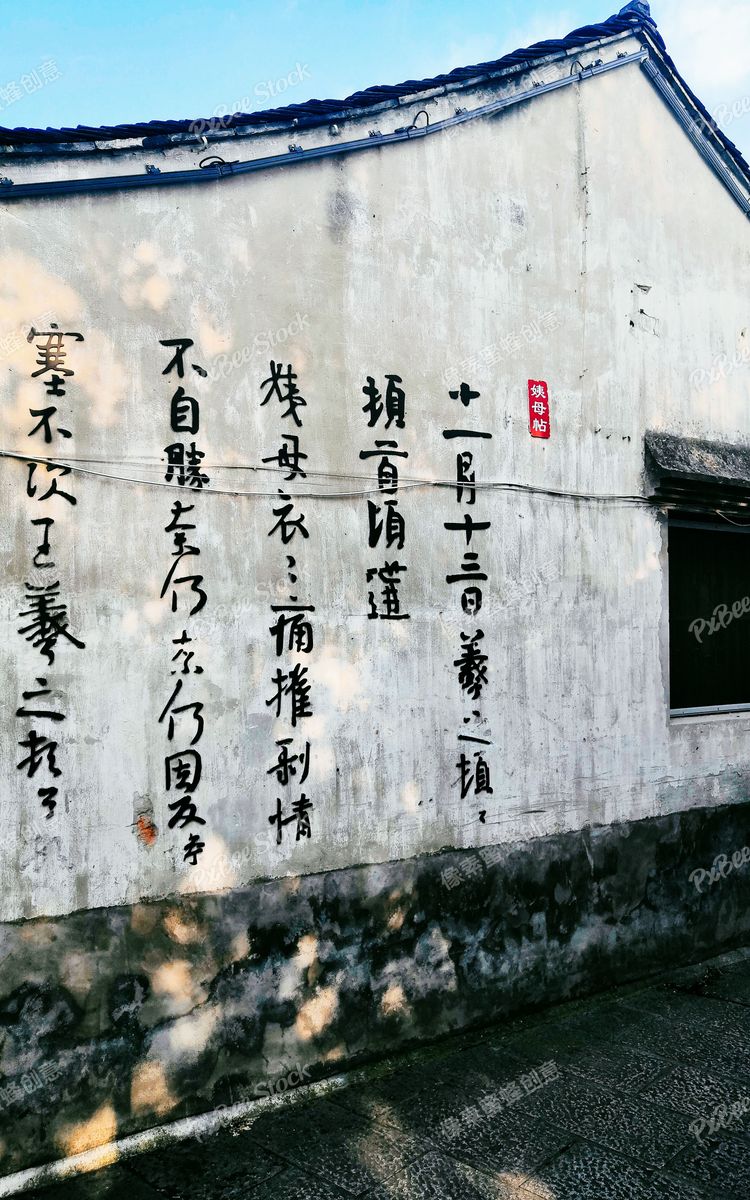 姨母帖
十一月十三日羲之頓首
頓首頃遘
姨母哀〻痛摧剝情
不自勝奈何奈何因反
塞不次王羲之頓首
像素蜜蜂创意
PxBee Stock